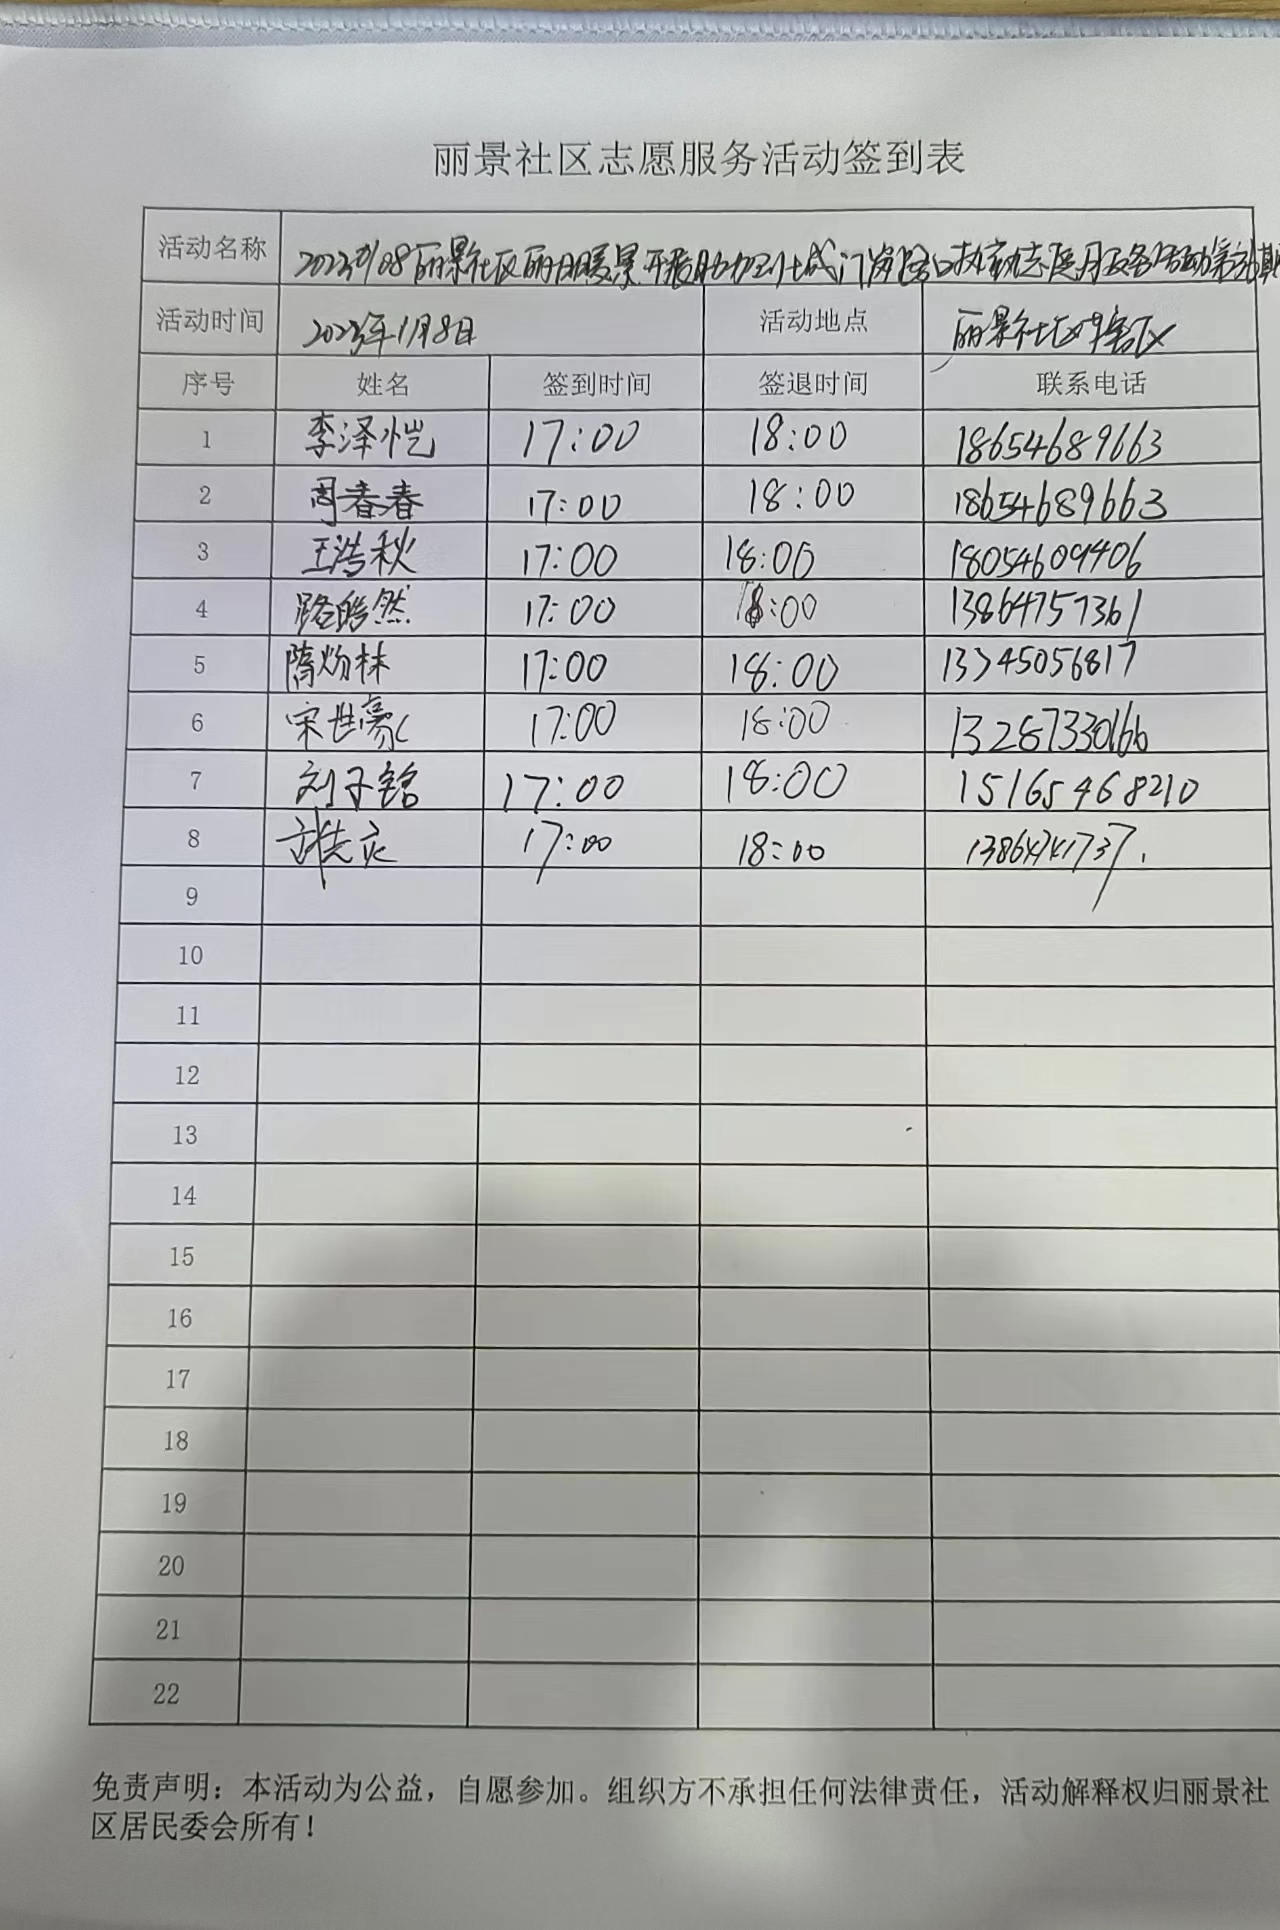 丽景社区志愿服务活动签到表
活动名称 2023 丽景社区丽 暖景 开展助力 城 门岗路口执勤志愿服务活动第 期
活动时间 2023年1月8日 活动地点 丽景社区辖区
序号 姓名 签到时间 签退时间 联系电话
1 李泽恺 17:00 18:00 18654689663
2 周春春 17:00 18:00 18654689663
3 王浩秋 17:00 18:00 18054609406
4 路皓然 17:00 18:00 13864757361
5 隋灼林 17:00 18:00 13345056817
6 宋世豪 17:00 18:00 13287330166
7 刘子铭 17:00 18:00 15165468210
8 17:00 18:00
9
10
11
12
13
14
15
16
17
18
19
20
21
22
免责声明：本活动为公益，自愿参加。组织方不承担任何法律责任，活动解释权归丽景社
区居民委会所有！